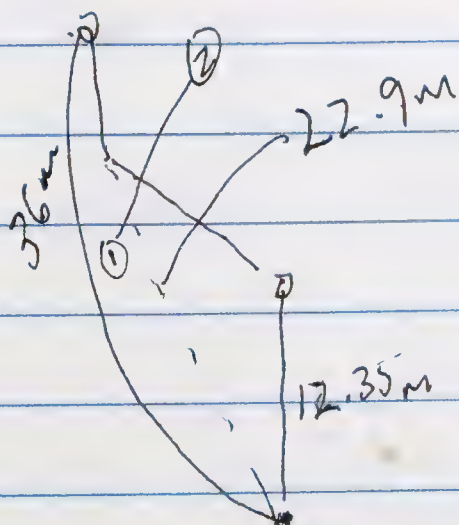 2
22.9m
36m
1
12.35m